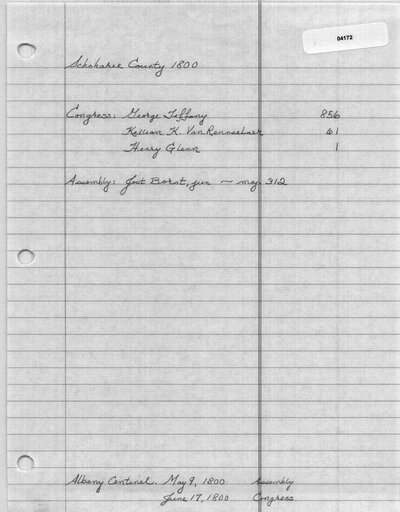 04172
Schoharie County 1800
Congress: George Tiffany 856
Killian K. Van Rensselaer 61
Henry Glenn 1
Assembly: Jost Borst, jun — maj. 312
Albany Centinel. May 9, 1800 Assembly
June 17, 1800 Congress